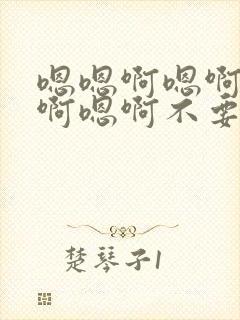 嗯嗯啊嗯啊
啊嗯啊不要
楚琴子1